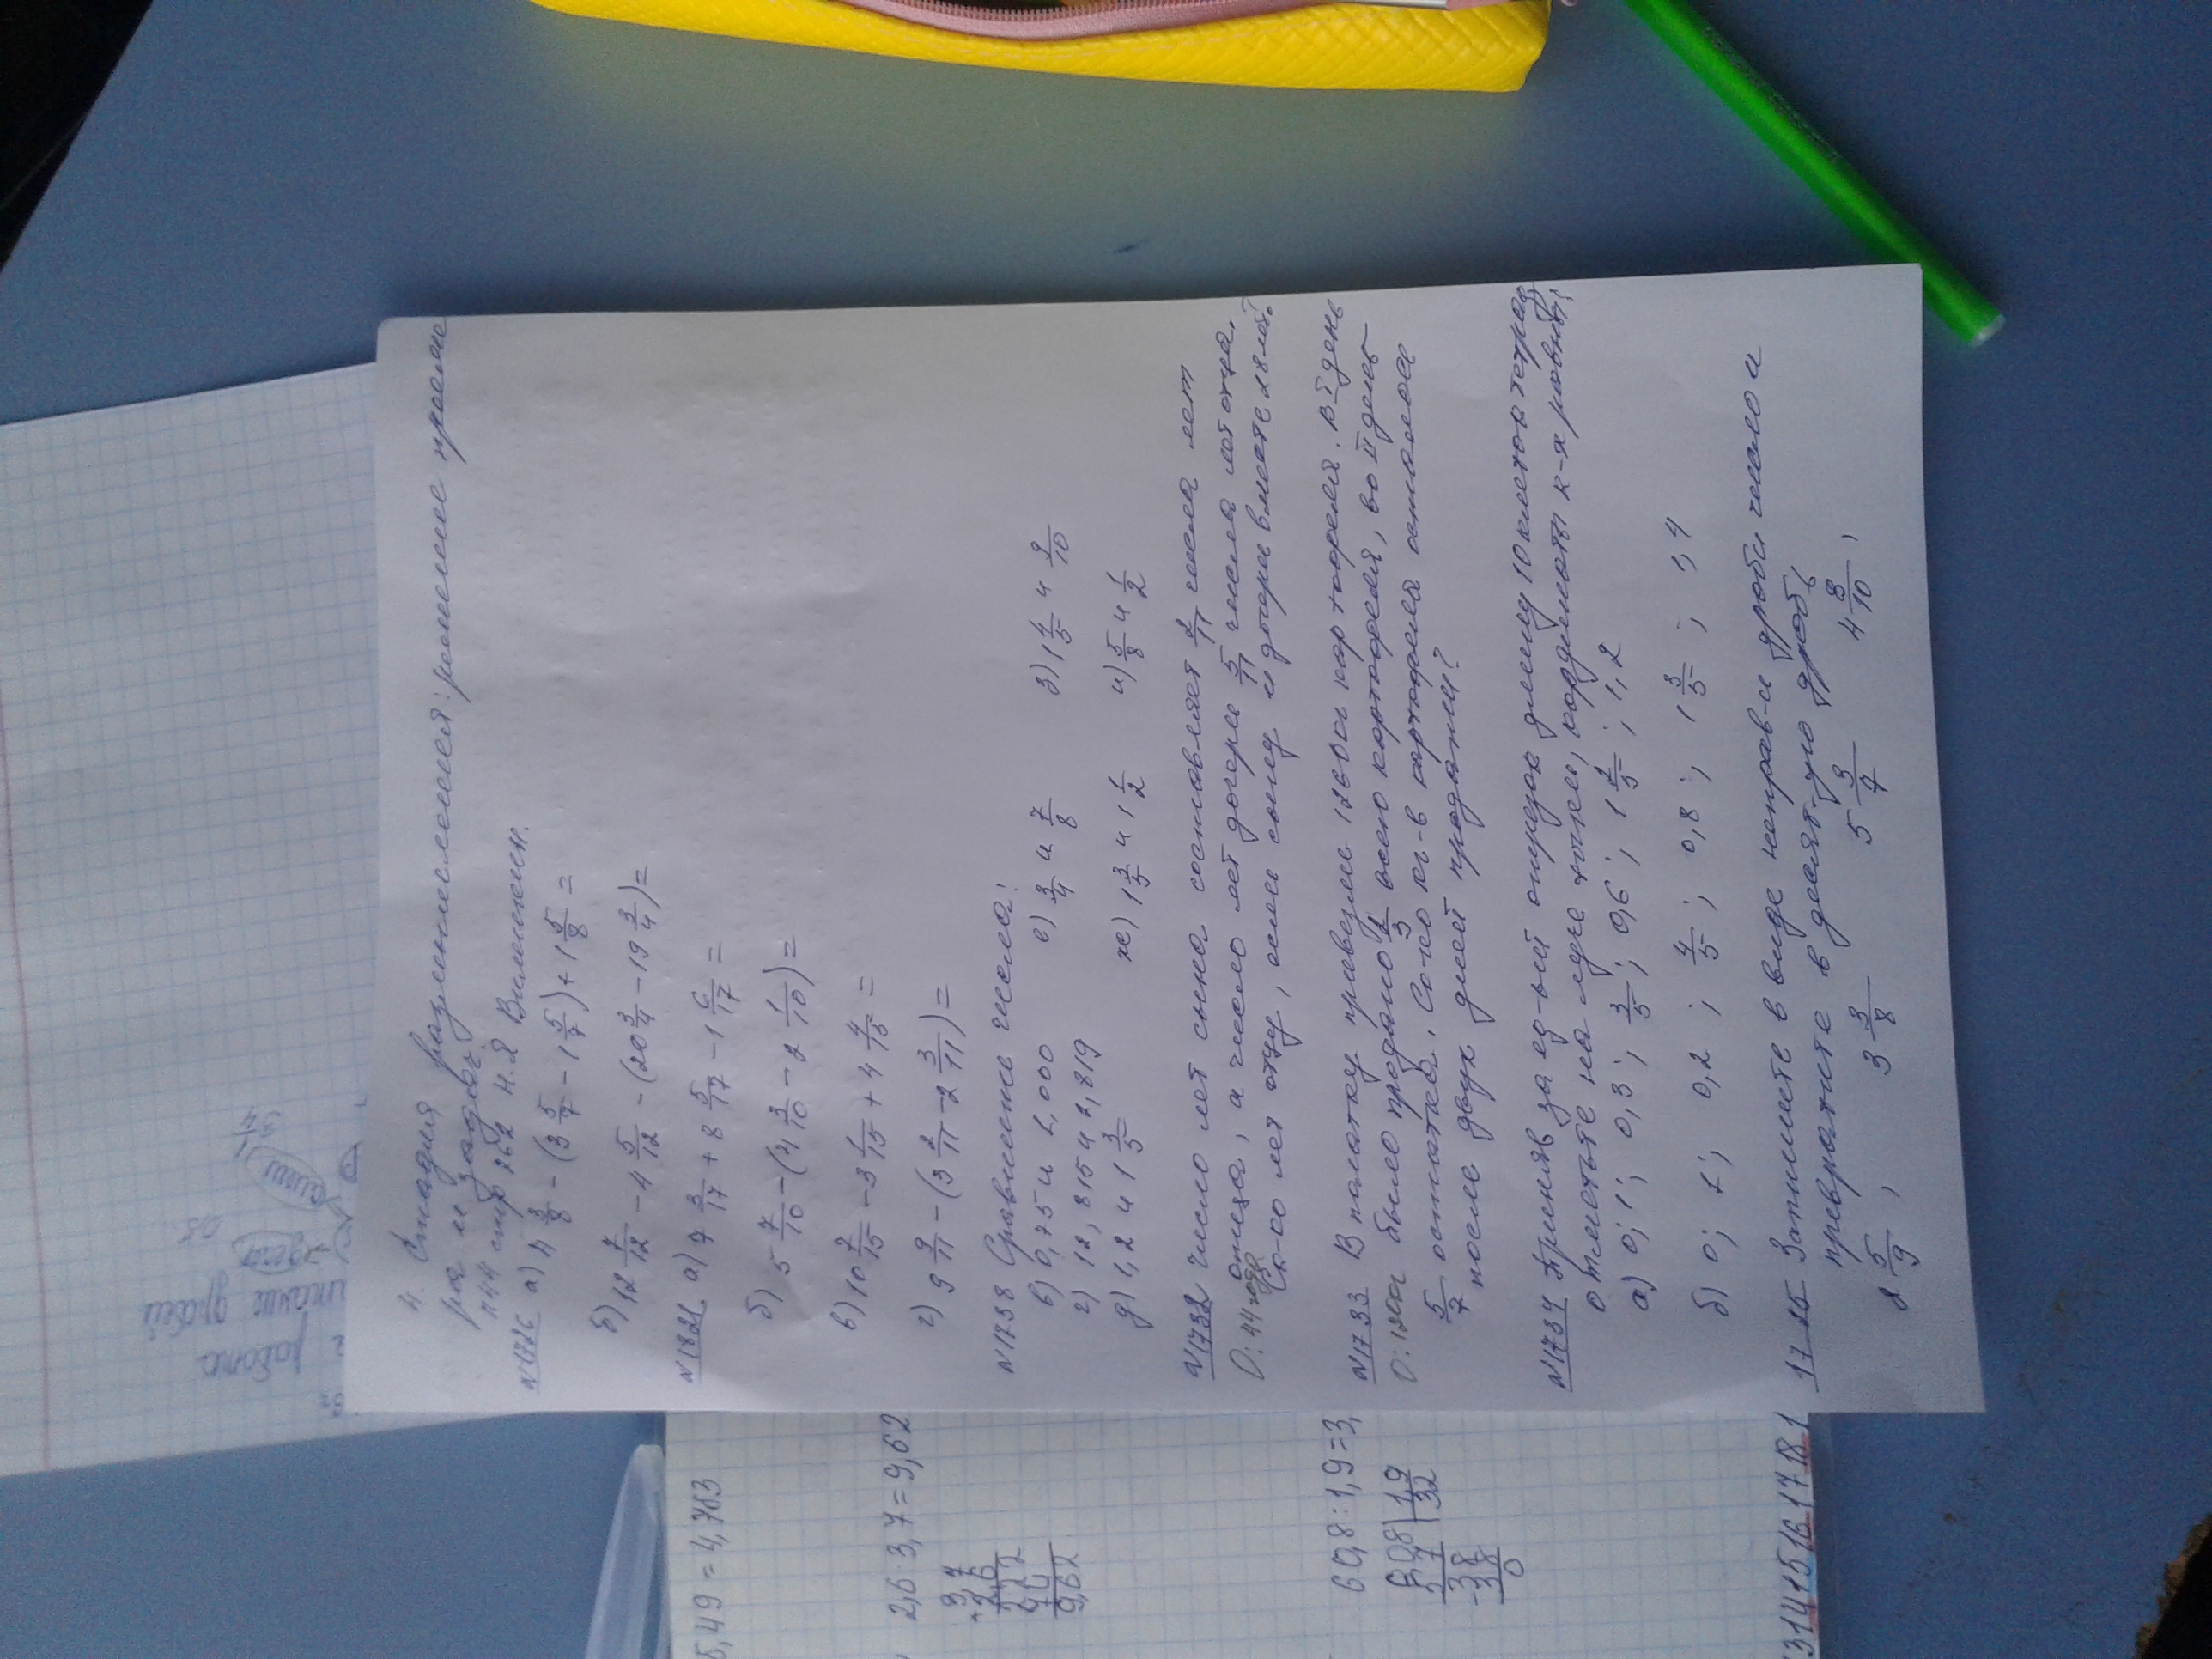 4. Стадия размышлений: решение приме
ра и задач.
п.44 стр. 262 Н.2 Вилекин.
№1726 а) 4 3/8 - (3 5/7 - 1 5/7) + 1 5/8 =
б) 12 7/12 - 4 5/12 - (20 3/4 - 19 3/4) =
а) 7 3/17 + 8 5/17 - 1 6/17 =
б) 5 7/10 - (4 3/10 - 2 1/10) =
в) 10 7/15 - 3 1/15 + 4 4/15 =
г) 9 9/11 - (3 2/11 - 2 3/11) =
№1738 Сравните числа:
в) 0,75 и 2,000 е) 3/4 и 7/8 з) 1 4/5 и 9/10
г) 12,815 и 2,819
д) 1,2 и 1 3/5 ж) 1 3/5 и 1 1/2 и) 5/8 и 1/2
№1732 число лет сына составляет 2/11 числа лет
отца, а число лет дочери 5/11 числа лет отца.
Ск-ко лет отцу, если сыну и дочери вместе 28 лет?
О: 44 года
№1733 В палатку привезли 1260 кг картофеля. В I день
было продано 2/3 всего картофеля, во II день
5/7 остатка. Ск-ко кг-в картофеля осталось
после двух дней продажи?
О: 120 кг
№1734 Приняв за ед-ый отрезок длину 10 клеток тетрад,
отметьте на луче точки, координаты к-х равны:
а) 0; 1; 0,3; 3/5; 0,6; 1 2/5; 1,2
б) 0; 1; 0,2; 4/5; 0,8; 1 3/5; 1,4
1725 Запишите в виде неправ-й дроби число и
превратите в десят-ую дробь
2 5/9, 3 3/8 5 3/7 4 3/10,
5,49 = 4,763
2,6 · 3,7 = 9,62
9,62
60,8 : 1,9 = 3,
608 | 19
57 32
-38
38
0
3 14 15 16 17 18 1
работа